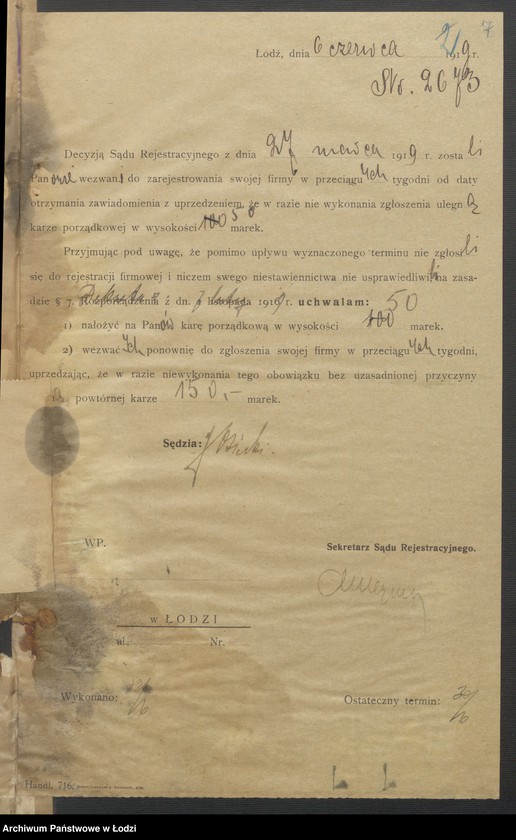 21 7
Łódź, dnia 6 czerwca 1919 r.
Nr. 2673
Decyzją Sądu Rejestracyjnego z dnia 27 marca 1919 r. zostali
Panowie wezwani do zarejestrowania swojej firmy w przeciągu 4ch tygodni od daty
otrzymania zawiadomienia z uprzedzeniem, że w razie nie wykonania zgłoszenia ulegną
karze porządkowej w wysokości 100 50 marek.
Przyjmując pod uwagę, że pomimo upływu wyznaczonego terminu nie zgłosili
się do rejestracji firmowej i niczem swego niestawiennictwa nie usprawiedliwili na zasa-
dzie § 7. Dekretu z dn. 7 lutego 1919 r. uchwalam:
1) nałożyć na Panów karę porządkową w wysokości 100 50 marek.
2) wezwać ich ponownię do zgłoszenia swojej firmy w przeciągu 4ch tygodni,
uprzedzając, że w razie niewykonania tego obowiązku bez uzasadnionej przyczyny
powtórnej karze 150.- marek.
Sędzia:
WP.
Sekretarz Sądu Rejestracyjnego.
w ŁODZI
ul. Nr.
Wykonano:
Ostateczny termin:
Handl. 716.
Archiwum Państwowe w Łodzi